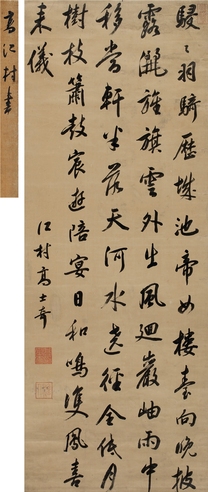 駸〻羽騎歷城池帝女樓臺向晚披
露灑旌旗雲外出風迴巖岫雨中
移當軒半落天河水遶徑全低月
樹枝簫鼓宸遊陪宴日和鳴雙鳳喜
來儀
江村高士奇
高江村書